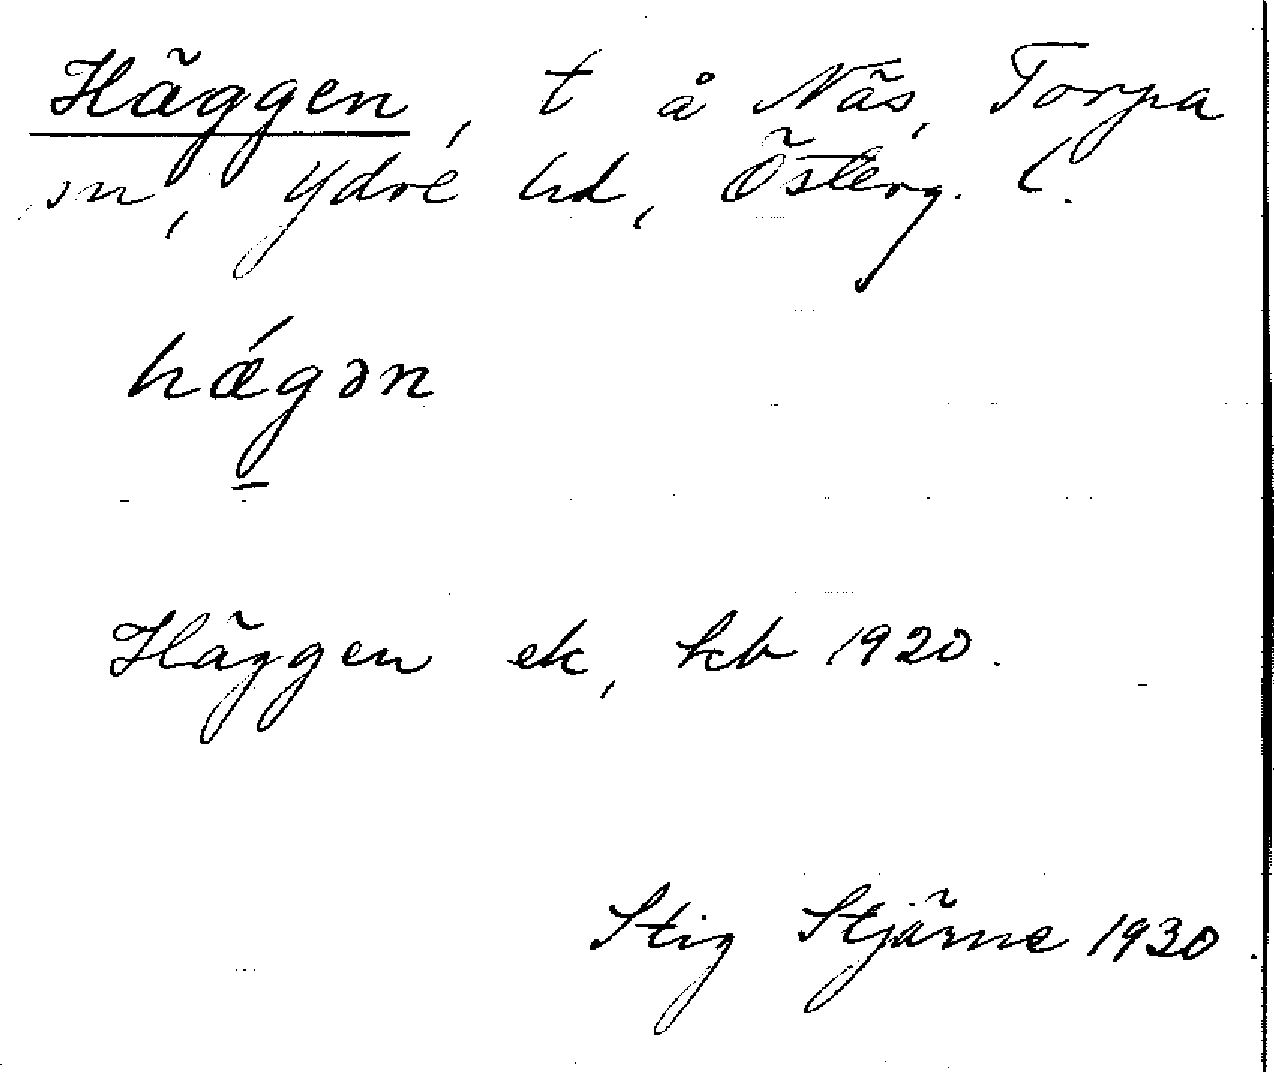 Häggen, t å Näs, Torpa
sn, Ydre hd, Österg. l.
hǽgən
Häggen ek, kb 1920.
Stig Stjärne 1930.